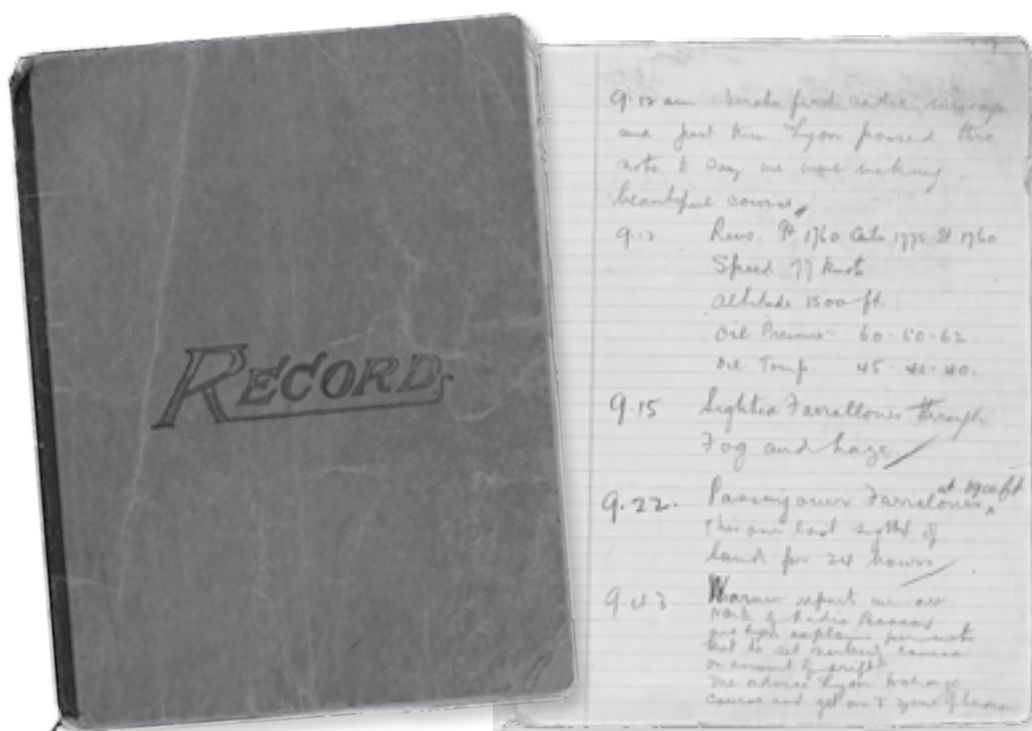 RECORDS
9.12 am first radio message
and just then Lyon passed thro
note to say we were making
beautiful course
9.1 Revs. Pt. 1760 Cent. 1775 St 1760
Speed 77 knots
Altitude 1500 ft.
Oil Pressure 60-50-62
Oil Temp. 45. 40.
9.15 Sighted Farrallones through
Fog and haze
at 1900 ft
9.22. Passing over Farralones
This our last sight of
land for 24 hours
9.43 Warner report we are
North of Radio Beacon
and Lyon explains per note
that he set northerly course
on account of drift
We advise Lyon to change
course and get on T zone of beacon